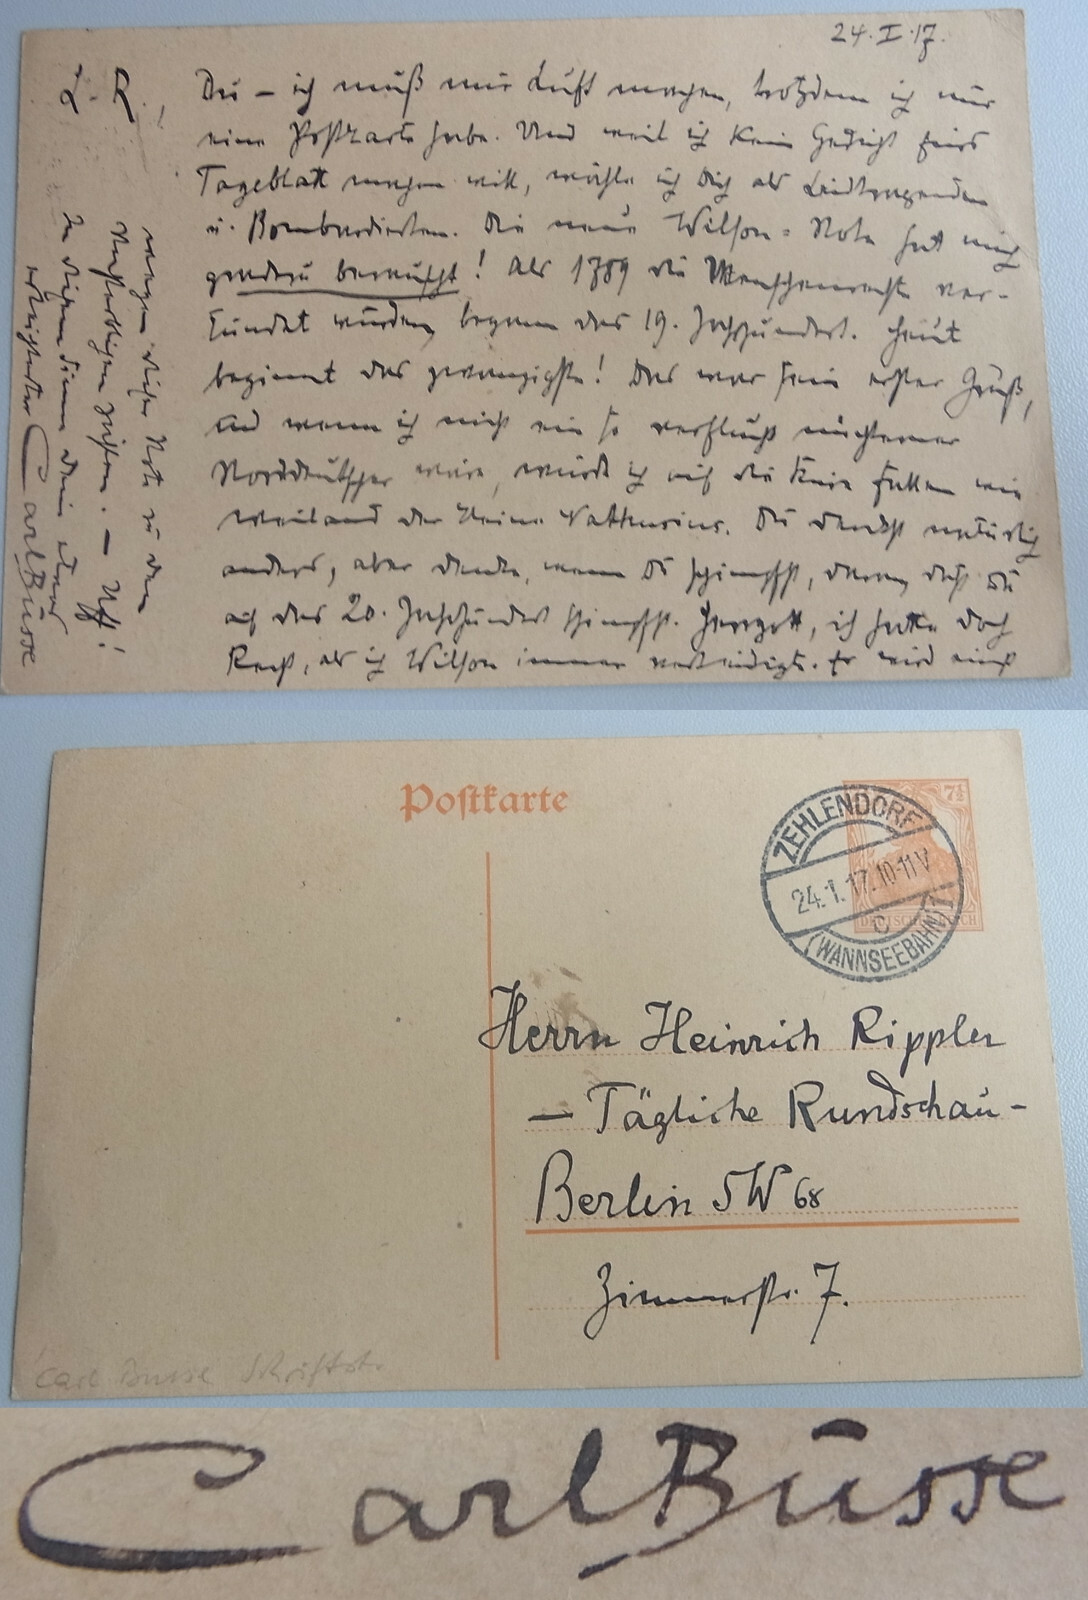 24.I.17.
L. R.!
Du – ich muß mir Luft machen, trotzdem ich nur
eine Postkarte habe. Und weil ich kein Gedicht fürs
Tageblatt machen will, wähle ich Dich als Leidtragenden
u. Bombardierten. Die neue Wilson-Note hat mich
geradezu berauscht! Als 1789 die Menschenrechte ver-
kündet wurden, begann das 19. Jahrhundert. Heut
beginnt das zwanzigste! Das war sein erster Gruß,
und wenn ich nicht ein so verflucht nüchterner
Norddeutscher wäre, würde ich auf die Knie fallen wie
weiland der kleine Nathusius. Du denkst natürlich
anders, aber denke, wenn Du schimpfst, daran, daß Du
auf das 20. Jahrhundert schimpfst. Herrgott, ich hatte doch
Recht, als ich Wilson immer verteidigte. Er wird einst
wegen dieser Note zu den
Unsterblichen zählen. — Uff!
In diesem Sinne Dein
Carl Busse
Postkarte
7½
DEUTSCHES REICH
ZEHLENDORF
24.1.17.10-11V
C
(WANNSEEBAHN)
Herrn Heinrich Rippler
— Tägliche Rundschau –
Berlin SW 68
Zimmerstr. 7.
Carl Busse Schriftst.
Carl Busse